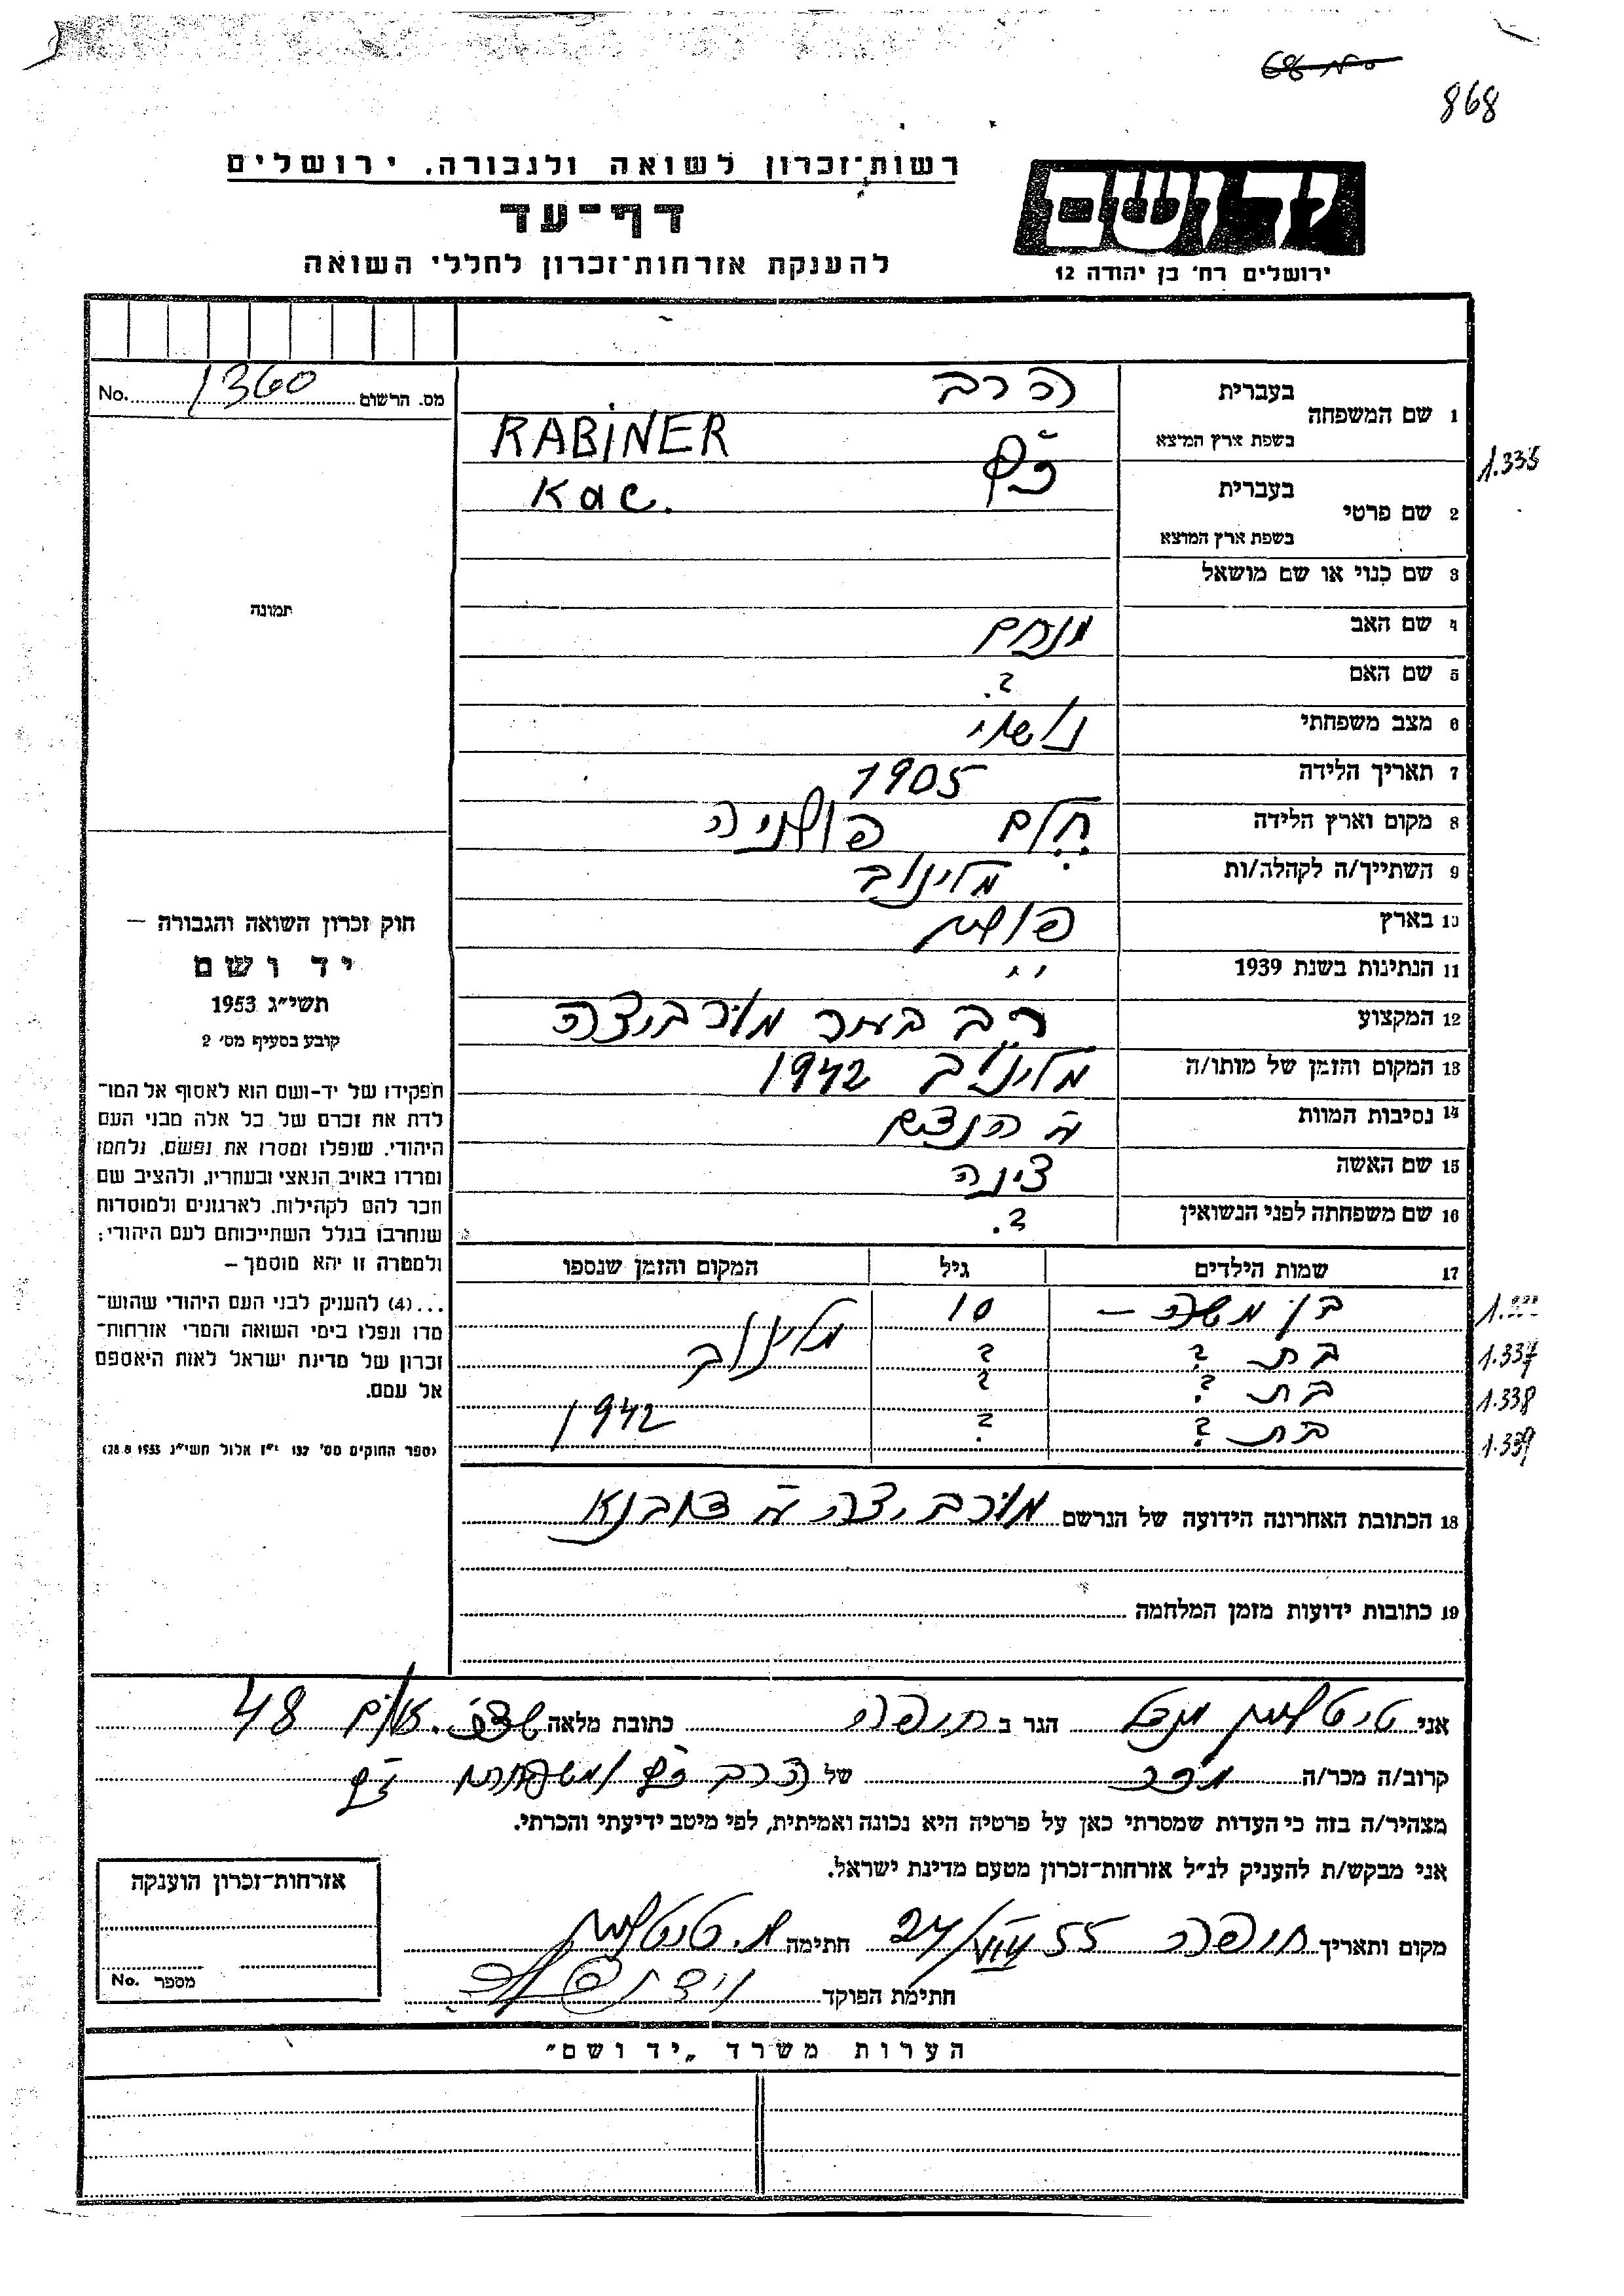 868
רשות־זכרון לשואה ולגבורה. ירושלים
דף־עד
להענקת אזרחות־זכרון לחללי השואה
יד ושם
ירושלים רח' בן יהודה 12
מס. הרשום 1360 No.
1 שם המשפחה
בעברית הרב
בשפת ארץ המוצא RABINER
כ"ץ
1.335
2 שם פרטי
בעברית Kac.
בשפת ארץ המוצא
3 שם כנוי או שם מושאל
תמונה
4 שם האב מנחם
5 שם האם ?.
6 מצב משפחתי נשוי
7 תאריך הלידה 1905
8 מקום וארץ הלידה חלם פולניה
9 השתייך/ה לקהלה/ות מלינוב
10 בארץ פולין
11 הנתינות בשנת 1939 "
12 המקצוע רב בעיר
13 המקום והזמן של מותו/ה מלינוב 1942
14 נסיבות המוות
15 שם האשה
16 שם משפחתה לפני הנשואין ?.
חוק זכרון השואה והגבורה –
יד ושם
תשי"ג 1953
קובע בסעיף מס' 2
תפקידו של יד-ושם הוא לאסוף אל המו־
לדת את זכרם של כל אלה מבני העם
היהודי, שנפלו ומסרו את נפשם, נלחמו
ומרדו באויב הנאצי ובעוזריו, ולהציב שם
וזכר להם לקהילות, לארגונים ולמוסדות
שנחרבו בגלל השתייכותם לעם היהודי;
ולמטרה זו יהא מוסמך –
...(4) להעניק לבני העם היהודי שהוש־
מדו ונפלו בימי השואה והמרי אזרחות־
זכרון של מדינת ישראל לאות היאספם
אל עמם.
(ספר החוקים מס' 132 י"ז אלול תשי"ג 28.8.1953)
17 שמות הילדים גיל המקום והזמן שנספו
בן משה – 10 מלינוב
בת ? ? 1.337
בת ? ? 1.338
בת ? ? 1942 1.339
18 הכתובת האחרונה הידועה של הנרשם
19 כתובות ידועות מזמן המלחמה
אני הגר ב חיפה כתובת מלאה 48
קרוב/ה מכר/ה מכר של הרב כ"ץ ומשפחתו
מצהיר/ה בזה כי העדות שמסרתי כאן על פרטיה היא נכונה ואמיתית, לפי מיטב ידיעתי והכרתי.
אני מבקש/ת להעניק לנ"ל אזרחות־זכרון מטעם מדינת ישראל.
מקום ותאריך חיפה 24/VIII 55 חתימה
חתימת הפוקד
אזרחות־זכרון הוענקה
מספר No.
הערות משרד „יד ושם"